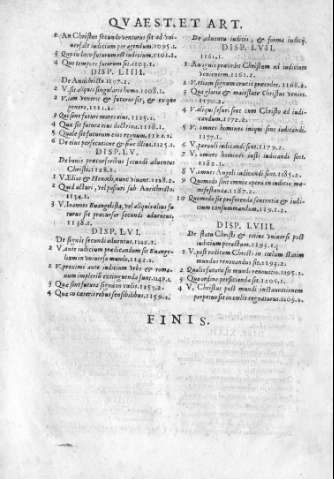 QVAEST. ET ART.
2 An Christus secundo venturus sit ad vni-
uersale iudicium peragendum. 1095.1.
3 Quo in loco futurum est iudicium. 1101.2.
4 Quo tempore futurum sit. 1103.1.
DISP. LIIII.
De Antichristo. 1107.1.
2 V. sit aliquis singularis homo. 1108.1.
2 V. iam venerit & futurus sit, & ex quo
genere. 1111.2.
3 Qui sint futuri mores eius. 1115.1.
4 Quae sit futura eius doctrina. 1118.1.
5 Quale sit futurum eius regnum. 1122.1.
6 De eius persecutione & fine illius. 1125.1.
DISP. LV.
De bonis praecursoribus secundi aduentus
Christi. 1128.1.
1 V. Elias & Henoch nunc viuant. 1128.2.
2 Quid acturi, vel passuri sub Antichristo.
1134.1.
3 V. Ioannes Euangelista, vel aliquis alius fu
turus sit praecursor secundi aduentus,
1138.1.
DISP. LVI.
De signis secundi aduentus. 1141.1.
1 V. Ante iudicium praedicandum sit Euange-
lium in vniuerso mundo. 1142.1.
2 V. proxime ante iudicium vrbs & roma-
num imperium extinguenda sint. 1147.1.
3 Quae sint futura signa in caelis. 1152.2.
4 Quae in caeteris rebus sensibilibus. 1159.1.
De aduentu iudicis, & forma iudicij.
DISP. LVII.
1161.1.
1 An ignis praecedet Christum ad iudicium
venientem. 1161.2.
2 V. etiam signum crucis praecedet. 1168.2.
3 Qua gloria & maiestate Christus veniet.
1170.2.
4 V. aliqui sessuri sint cum Christo ad iudi-
candum. 1172.2.
5 V. omnes homines iniqui sint iudicandi.
1177.1.
6 V. paruuli iudicandi sint. 1179.2.
7 V. omnes homines iusti iudicandi sint.
1182.2.
8 V. omnes Angeli iudicandi sint. 1185.2.
9 Quomodo sint omnia opera in iudicio ma-
nifestanda. 1187.2.
10 Quomodo sit proferenda sententia & iudi-
cium consummandum. 1191.2.
DISP. LVIII.
De statu Christi & totius vniuersi post
iudicium peractum. 1193.1.
1 V. post reditum Christi in caelum statim
mundus renouandus sit. 1193.2.
2 Qualis futura sit mundi renouatio. 1195.1.
3 Quo ordine perficienda sit. 1205.1.
4 V. Christus post mundi instaurationem
perpetuo sit in caelis regnaturus. 1209.2.
FINIS.